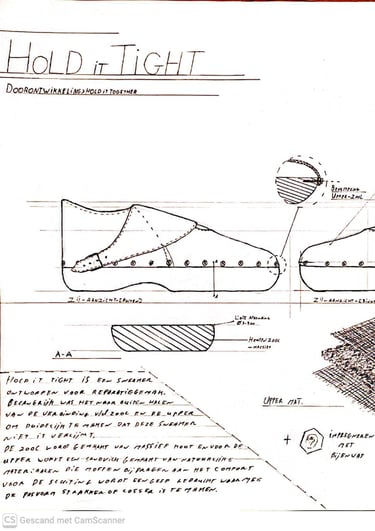 HOLD iT TIGHT
DOORONTWIKKELING > HOLD IT TOGETHER
BEVESTIGING
UPPER - ZOOL
ZIJ-AANZICHT
ZIJ-AANZICHT
HOUTEN ZOOL
- MASSIEF
A-A
HOLD IT TIGHT IS EEN SNEAKER
ONTWORPEN VOOR REPARATIEGEMAK.
BELANGRIJK WAS HET NAAR BUITEN HALEN
VAN DE VERBINDING V/D ZOOL EN DE UPPER
OM DUIDELIJK TE MAKEN DAT DEZE SNEAKER
NIET IS VERLIJMT.
DE ZOOL WORDT GEMAAKT VAN MASSIEF HOUT EN VOOR DE
UPPER WORDT EEN SANDWICH GEMAAKT VAN NATUURLIJKE
MATERIALEN DIE MOETEN BIJDRAGEN AAN HET COMFORT
VOOR DE SLUITING WORDT EEN GESP GEBRUIKT WAARMEE
DE PASVORM STRAKKER OF LOSSER IS TE MAKEN.
UPPER MAT.
+
IMPREGNEREN
MET
BIJENWAS
CS Gescand met CamScanner